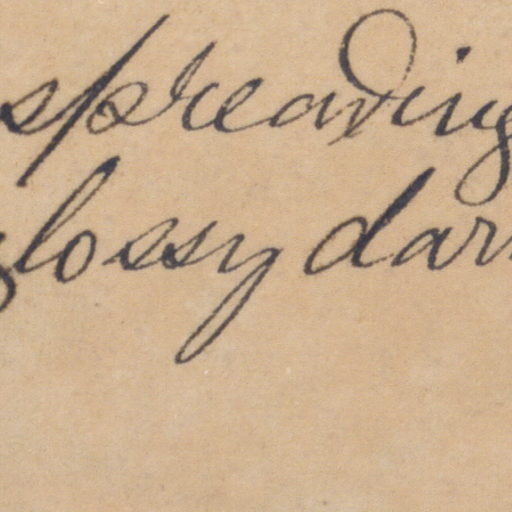 spreading
glossy dar